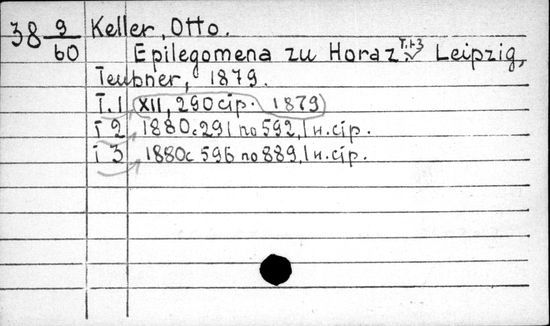 38 9/60 Keller, Otto.
Epilegomena zu Horaz T.1-3 Leipzig,
Teubner, 1879.
T.1 XII, 290 cip. 1879
T 2 1880 c 291 no 592, 1 н. cip.
T 3 1880 c 596 no 889, 1 н. cip.